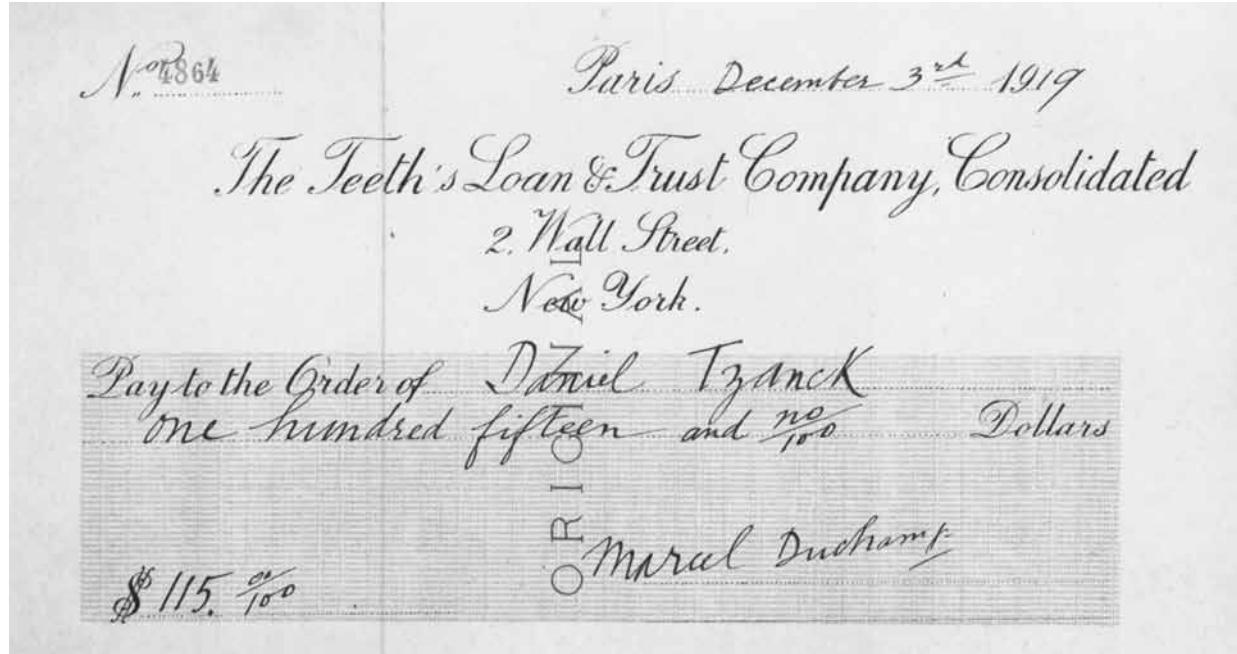 No. 4864
Paris December 3rd 1919
The Teeth's Loan & Trust Company, Consolidated
2. Wall Street.
New York.
Pay to the Order of Daniel Tzanck
one hundred fifteen and no/100 Dollars
Marcel Duchamp
$ 115. 00/100
ORIGINAL